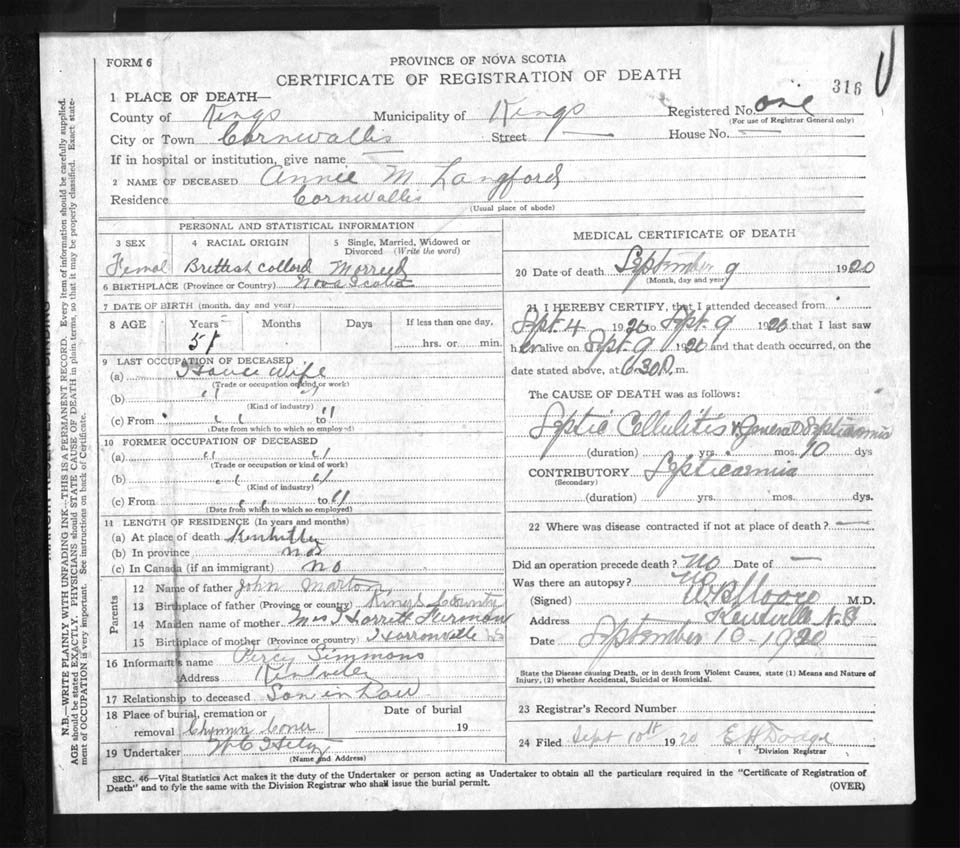 FORM 6
PROVINCE OF NOVA SCOTIA
CERTIFICATE OF REGISTRATION OF DEATH
316
1 PLACE OF DEATH—
County of Kings Municipality of Kings Registered No. one
(For use of Registrar General only)
City or Town Cornwallis Street — House No. —
If in hospital or institution, give name —
2 NAME OF DECEASED Annie M Langford
Residence Cornwallis
(Usual place of abode)
PERSONAL AND STATISTICAL INFORMATION
3 SEX 4 RACIAL ORIGIN 5 Single, Married, Widowed or Divorced (Write the word)
Femal Brettish Collord Morried
6 BIRTHPLACE (Province or Country) Nova Scotia
7 DATE OF BIRTH (month, day and year)
8 AGE Years Months Days If less than one day,
51 hrs. or min.
9 LAST OCCUPATION OF DECEASED
(a) House Wife
(Trade or occupation or kind or work)
(b) " "
(Kind of industry)
(c) From " " to "
(Date from which to which so employed)
10 FORMER OCCUPATION OF DECEASED
(a) " "
(Trade or occupation or kind of work)
(b) " "
(Kind of industry)
(c) From " " to "
(Date from which to which so employed)
11 LENGTH OF RESIDENCE (In years and months)
(a) At place of death
(b) In province
(c) In Canada (if an immigrant) no
Parents
12 Name of father John
13 Birthplace of father (Province or country) Kings County
14 Maiden name of mother Mrs Harriett
15 Birthplace of mother (Province or country)
16 Informant's name Percy Simmons
Address
17 Relationship to deceased Son in Law
18 Place of burial, cremation or removal Date of burial 19
19 Undertaker
(Name and Address)
MEDICAL CERTIFICATE OF DEATH
20 Date of death September 9 1920
(Month, day and year)
21 I HEREBY CERTIFY, that I attended deceased from
Sept. 4 1920 to Sept. 9 1920 that I last saw
her alive on Sept. 9 1920 and that death occurred, on the
date stated above, at 6.30 P. m.
The CAUSE OF DEATH was as follows:
Septic Cellulitis & General Septicaemia
(duration) yrs. mos. 10 dys
CONTRIBUTORY Septicaemia
(Secondary)
(duration) yrs. mos. dys.
22 Where was disease contracted if not at place of death? —
Did an operation precede death? No Date of —
Was there an autopsy? No
(Signed) Moore M.D.
Address Kentville N.S
Date September 10 - 1920
State the Disease causing Death, or in death from Violent Causes, state (1) Means and Nature of
Injury, (2) whether Accidental, Suicidal or Homicidal.
23 Registrar's Record Number
24 Filed Sept 10th 1920 E H Dodge
Division Registrar
SEC. 46—Vital Statistics Act makes it the duty of the Undertaker or person acting as Undertaker to obtain all the particulars required in the "Certificate of Registration of
Death" and to fyle the same with the Division Registrar who shall issue the burial permit.
(OVER)
N.B.—WRITE PLAINLY WITH UNFADING INK—THIS IS A PERMANENT RECORD. Every item of information should be carefully supplied.
AGE should be stated EXACTLY. PHYSICIANS should STATE CAUSE OF DEATH in plain terms, so that it may be properly classified. Exact state-
ment of OCCUPATION is very important. See instructions on back of Certificate.